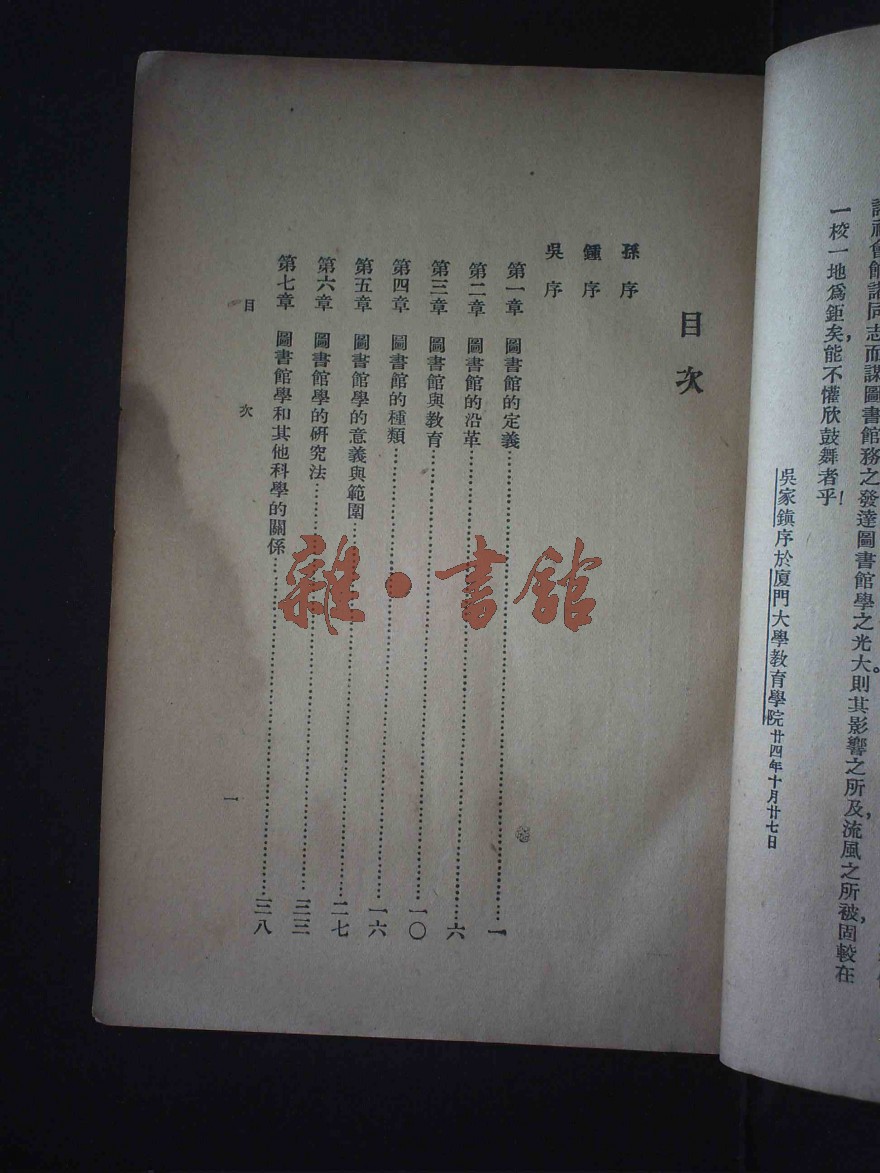 館諸同志而謀圖書館務之發達圖書館學之光大則其影響之所及，流風之所被，固較在
一校一地爲鉅矣，能不懽欣鼓舞者乎！
吳家鎮序於廈門大學教育學院廿四年十月廿七日
目次
孫序
鍾序
吳序
第一章 圖書館的定義……一
第二章 圖書館的沿革……六
第三章 圖書館與教育……一〇
第四章 圖書館的種類……一六
第五章 圖書館學的意義與範圍……二七
第六章 圖書館學的研究法……三三
第七章 圖書館學和其他科學的關係……三八
目次
一
雜·書館